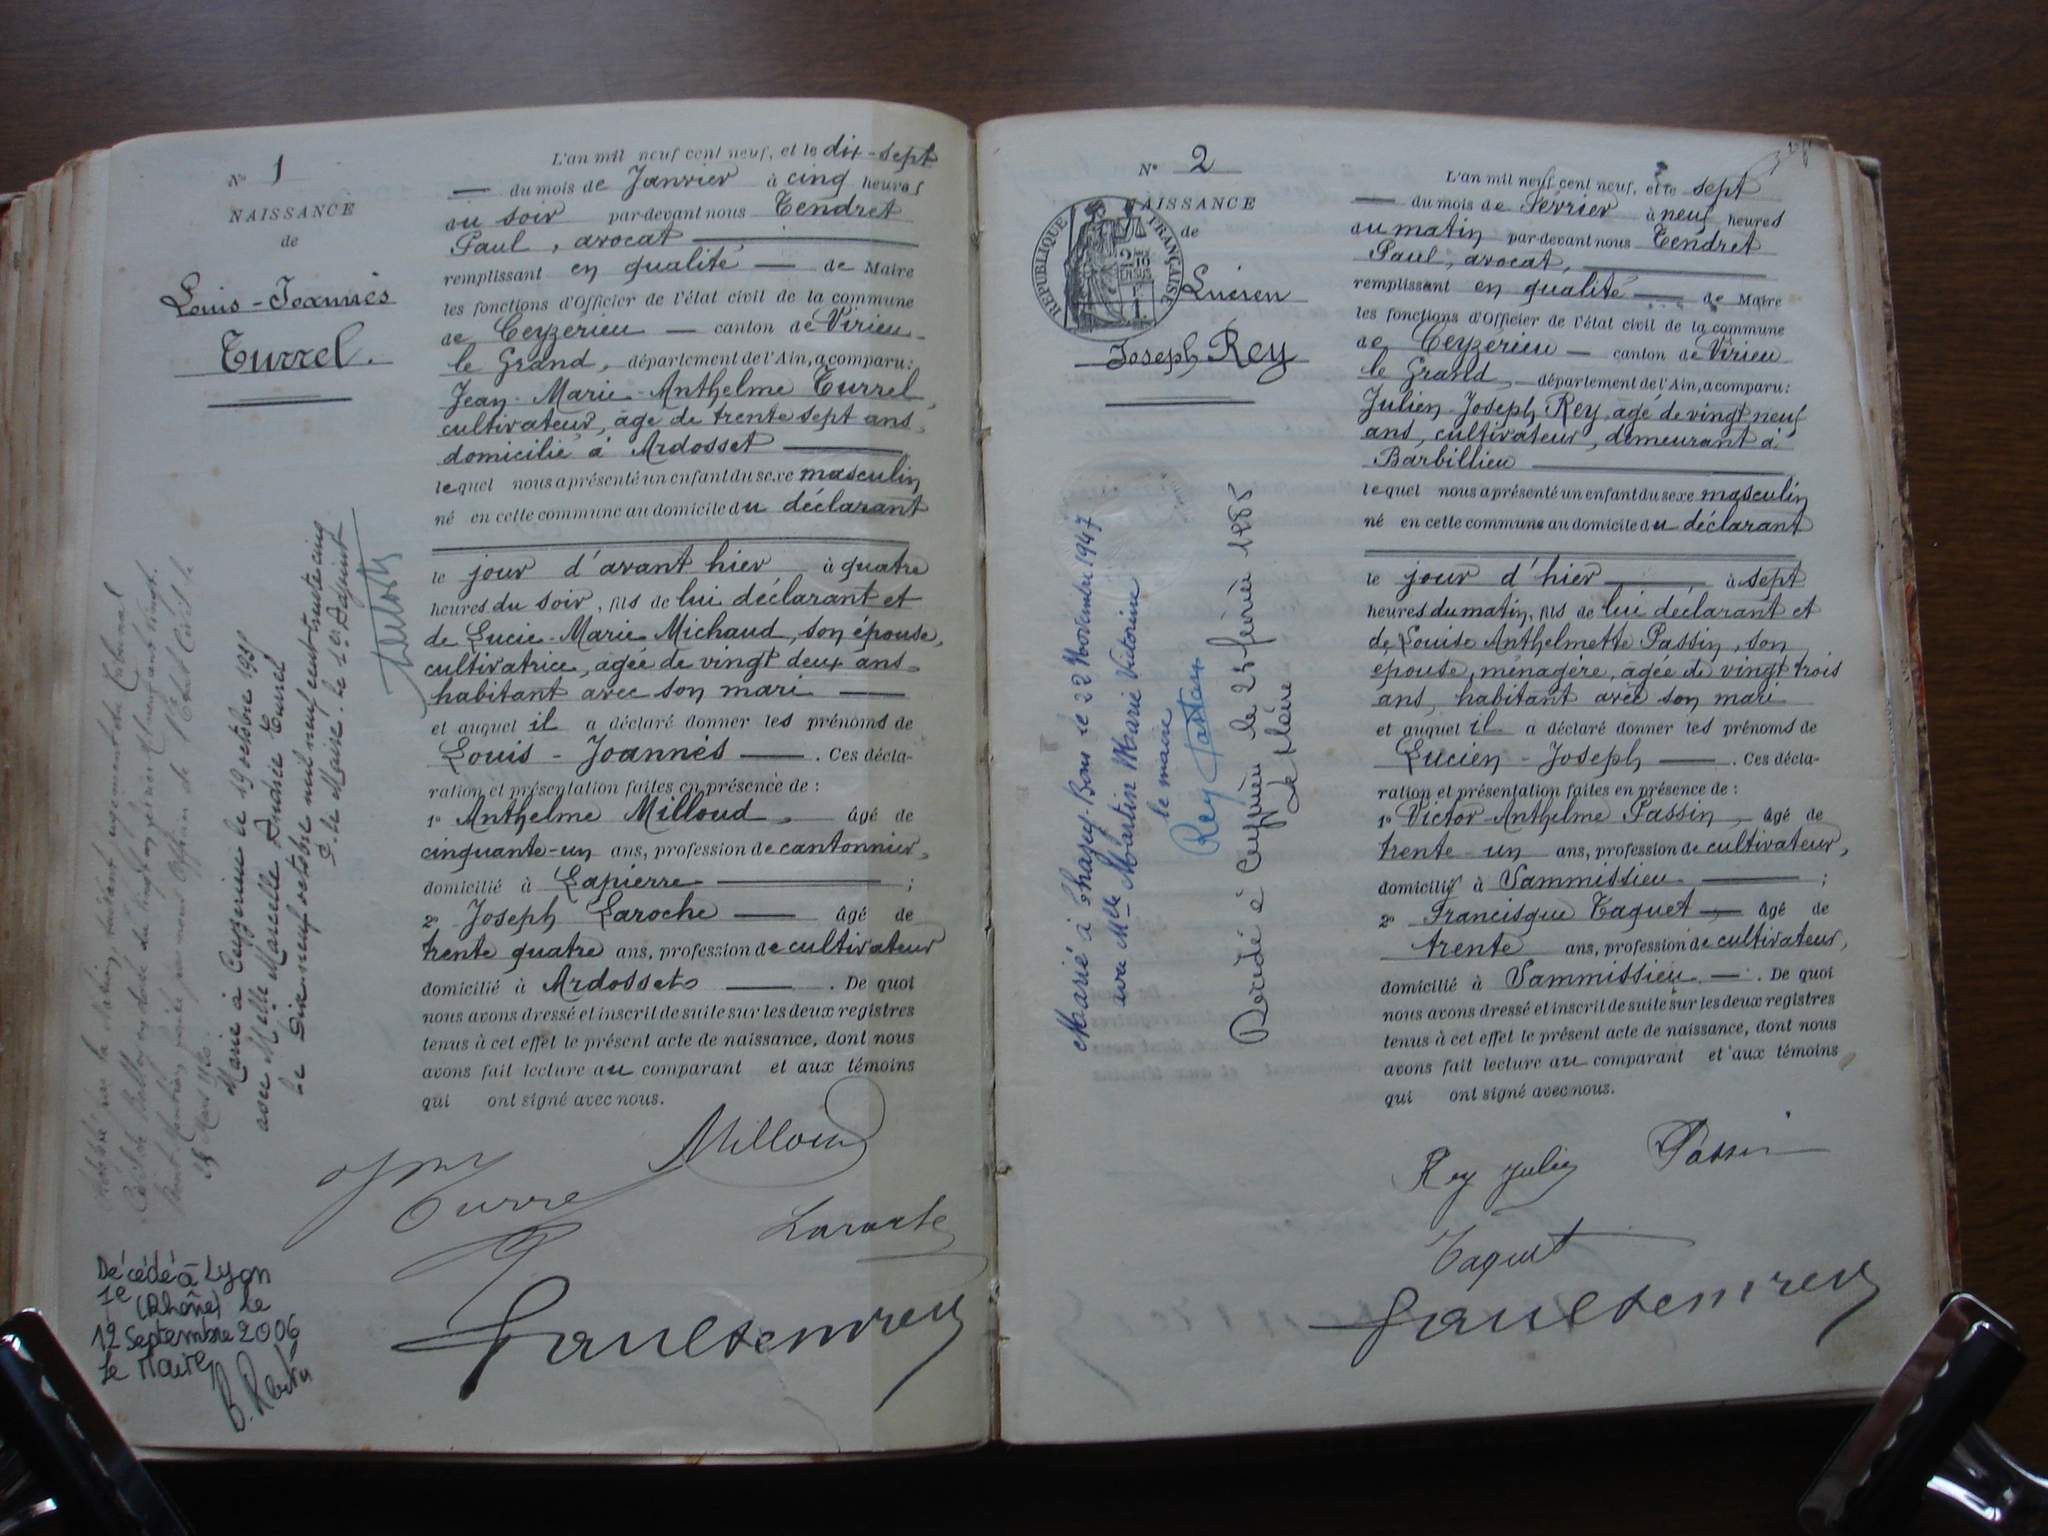 N° 1
NAISSANCE
de
Louis-Joannès
Turrel.
L'an mil neuf cent neuf, et le dix-sept
du mois de Janvier à cinq heures
du soir par-devant nous Tendret
Paul, avocat
remplissant en qualité de Maire
les fonctions d'Officier de l'état civil de la commune
de Ceyzerieu canton de Virieu-
le Grand, département de l'Ain, a comparu:
Jean-Marie-Anthelme Turrel,
cultivateur, âgé de trente sept ans,
domicilié à Ardosset
lequel nous a présenté un enfant du sexe masculin
né en cette commune au domicile du déclarant
le jour d'avant hier à quatre
heures du soir, fils de lui déclarant et
de Lucie-Marie Michaud, son épouse,
cultivatrice, âgée de vingt deux ans
habitant avec son mari
et auquel il a déclaré donner les prénoms de
Louis-Joannès. Ces décla-
ration et présentation faites en présence de :
1° Anthelme Milloud, âgé de
cinquante-un ans, profession de cantonnier,
domicilié à Lapierre ;
2° Joseph Laroche âgé de
trente quatre ans, profession de cultivateur
domicilié à Ardosset. De quoi
nous avons dressé et inscrit de suite sur les deux registres
tenus à cet effet le présent acte de naissance, dont nous
avons fait lecture au comparant et aux témoins
qui ont signé avec nous.
Milloud
Turrel
Laroche
Paul Tendret
Marié à Ceyzerieu le 19 octobre 1935
avec Mlle Marcelle Andrée Turrel
le dix neuf octobre mil neuf cent trente cinq
P. le Maire. le 1er Adjoint
28 Mars 1940
Décédé à Lyon
1e (Rhône) le
12 Septembre 2006
Le Maire,
N° 2
NAISSANCE
de
REPUBLIQUE FRANÇAISE
Lucien
Joseph Rey
L'an mil neuf cent neuf, et le sept
du mois de Février à neuf heures
du matin par-devant nous Tendret
Paul, avocat,
remplissant en qualité de Maire
les fonctions d'Officier de l'état civil de la commune
de Ceyzerieu canton de Virieu
le Grand, département de l'Ain, a comparu:
Julien-Joseph Rey âgé de vingt neuf
ans, cultivateur, demeurant à
Barbillieu
lequel nous a présenté un enfant du sexe masculin
né en cette commune au domicile du déclarant
le jour d'hier à sept
heures du matin, fils de lui déclarant et
de Louise Anthelmette Passin, son
épouse, ménagère, âgée de vingt trois
ans, habitant avec son mari
et auquel il a déclaré donner les prénoms de
Lucien-Joseph. Ces décla-
ration et présentation faites en présence de :
1° Victor-Anthelme Passin, âgé de
trente-un ans, profession de cultivateur,
domicilié à Vammissieu ;
2° Francisque Taquet âgé de
trente ans, profession de cultivateur,
domicilié à Vammissieu. De quoi
nous avons dressé et inscrit de suite sur les deux registres
tenus à cet effet le présent acte de naissance, dont nous
avons fait lecture au comparant et aux témoins
qui ont signé avec nous.
Rey Julien
Passin
Taquet
Paul Tendret
Marié à Chazey-Bons le 22 Novembre 1947
avec Mlle Martin Marie Victorine
le maire
Décédé à Ceyzérieu le 25 février 1988
Le Maire